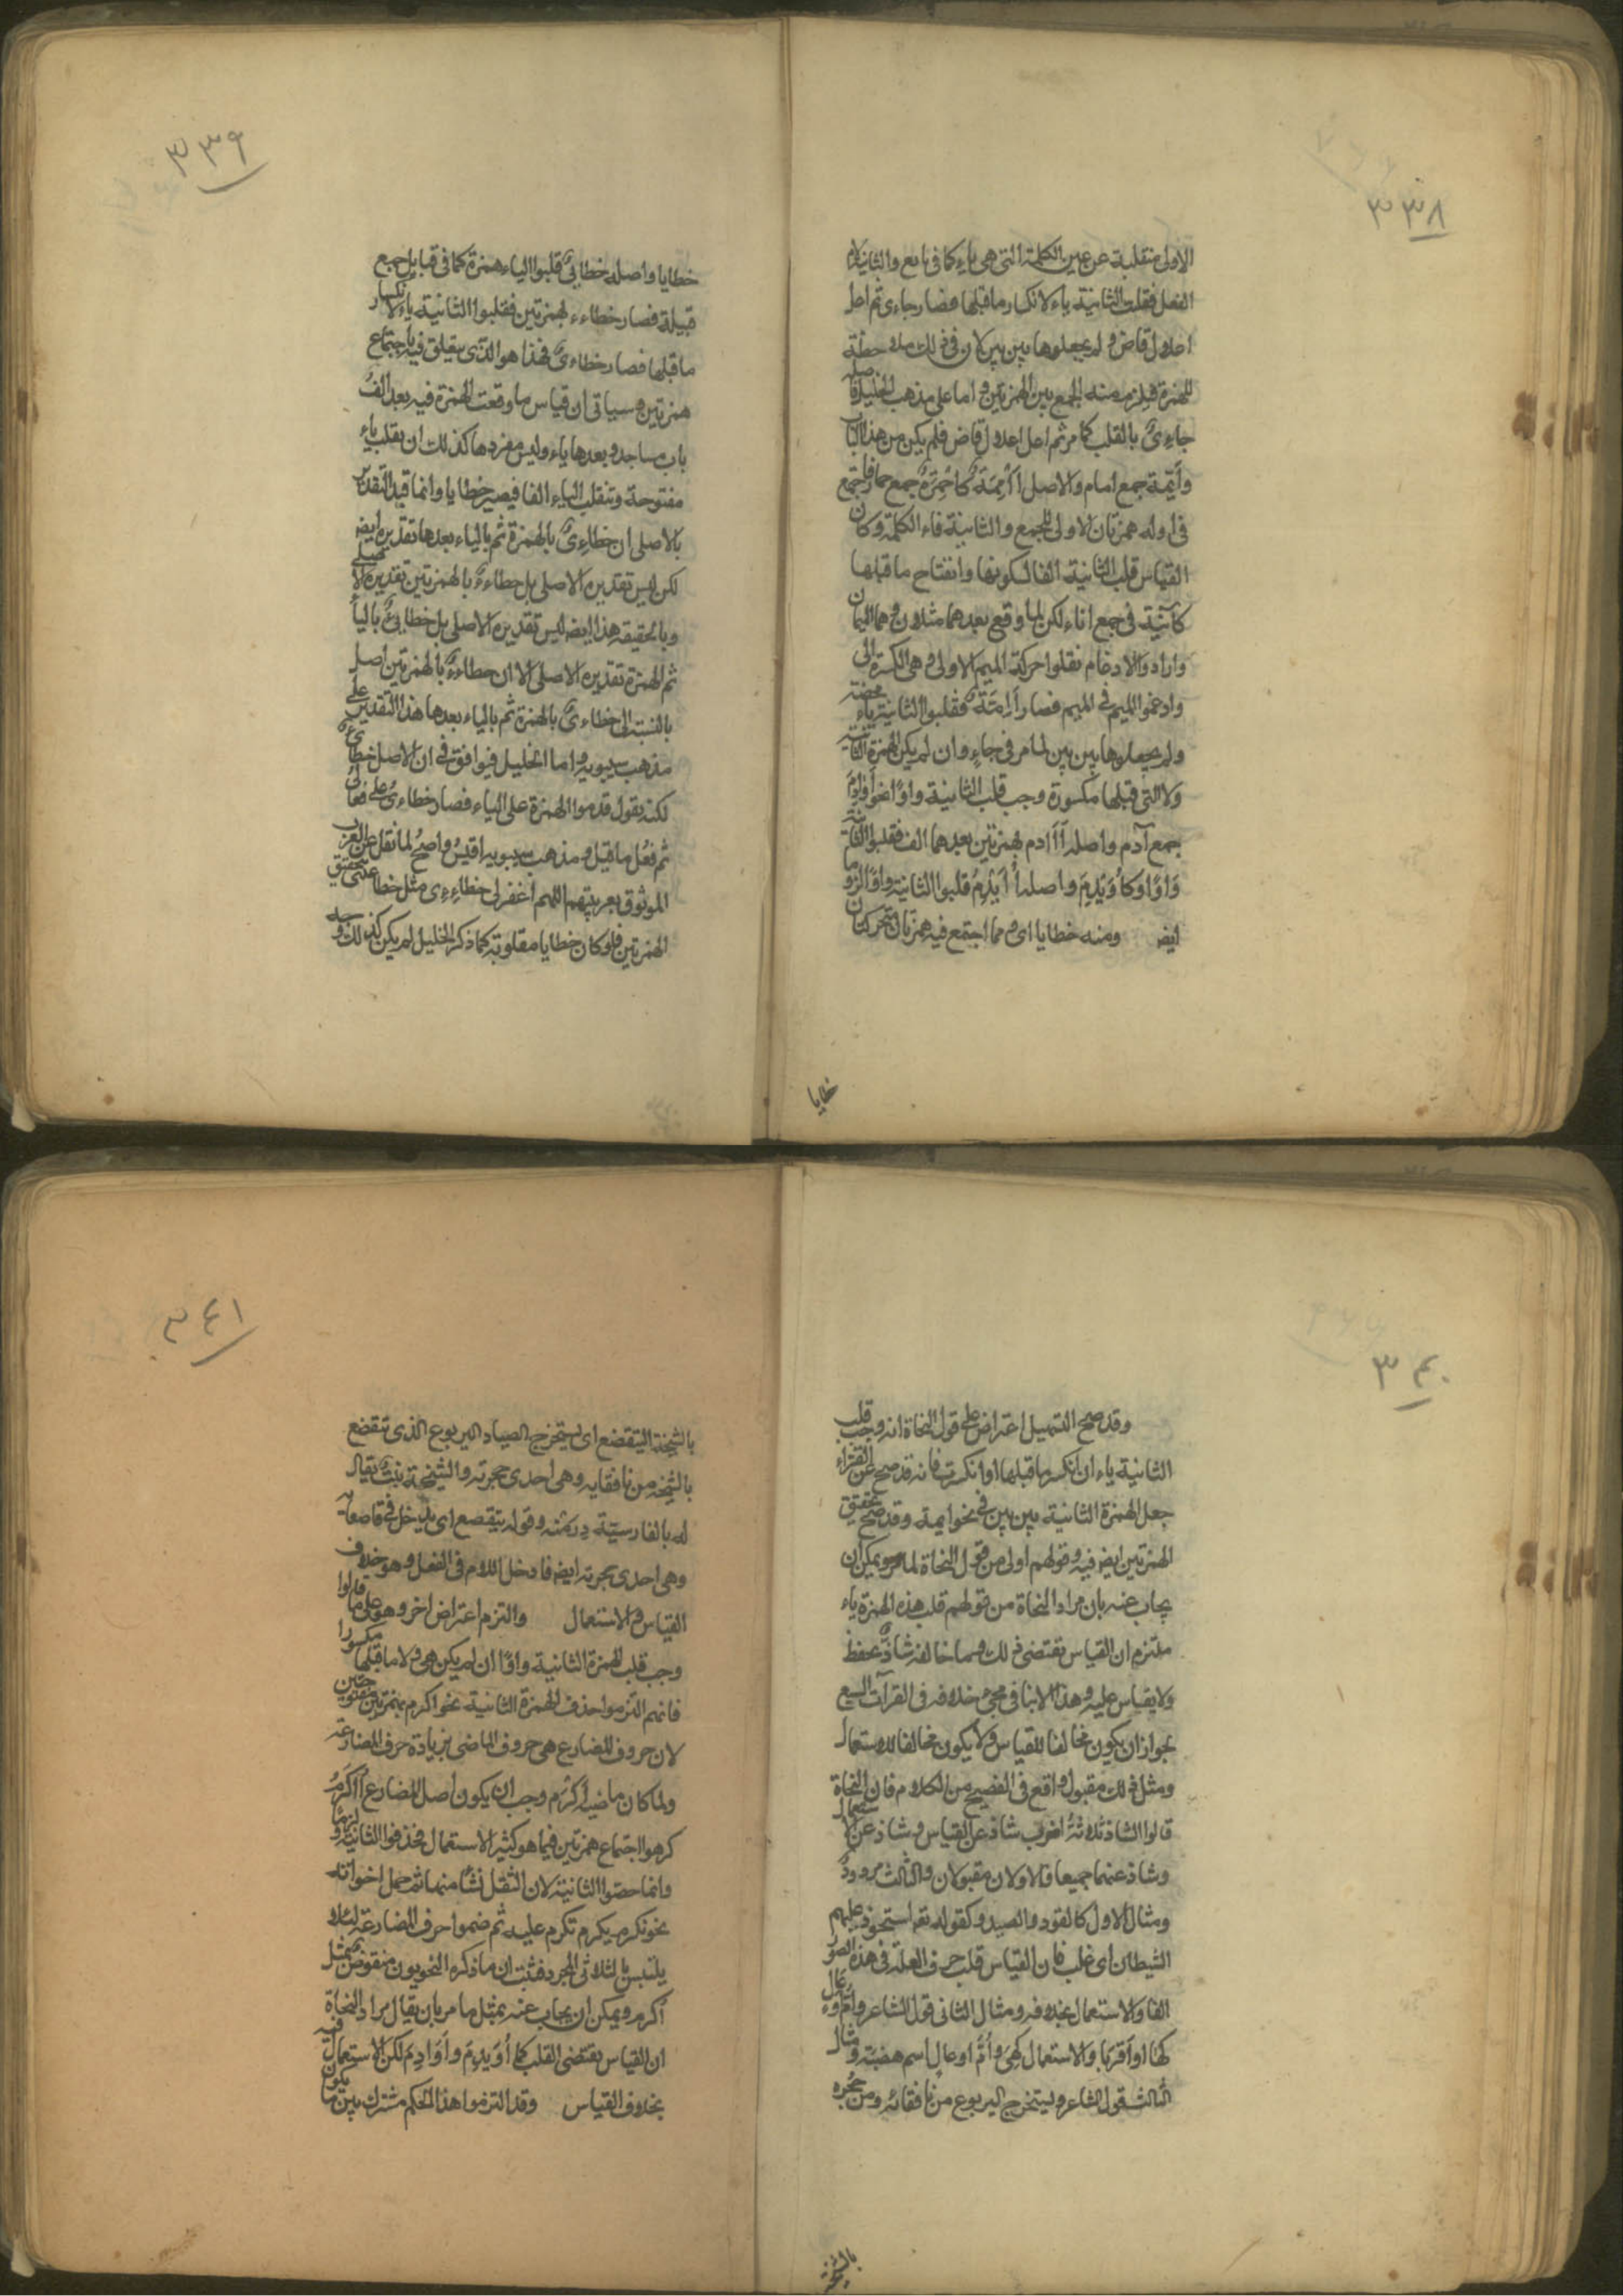 ٣٣٨
الاولى منقلبة عن عين الكلمة التى هى ياء كما فى بايع والثانية لام
الفعل فقلبت الثانية ياء لانكسار ما قبلها فصار جاءى ثم اعل
اعلال قاض ولم يجعلوها بين بين لان فى ذلك ملاحظة
للهمزة فيلزم منه الجمع بين الهمزتين واما على مذهب الخليل فاصله
جاءِىٌ بالقلب كما مر ثم اعل اعلال قاض فلم يكن من هذا الباب
وأَيِمّة جمع امام والاصل أَأْمِمَةٌ كأَحْمِرَةٌ جمع حمار فاجتمع
فى اوله همزتان الاولى للجمع والثانية فاء الكلمة وكان
القياس قلب الثانية الفا لسكونها وانفتاح ما قبلها
كآنية فى جمع اناء لكن لما وقع بعدهما مثلان وهما الميمان
وارادوا الادغام نقلوا حركة الميم الاولى وهى الكسرة الى
وادغموا الميم فى الميم فصار أَإِمَّةٌ فقلبوا الثانية ياء محضة
ولم يجعلوها بين بين لما مر فى جاءٍ وان لم يكن الهمزة الثانية
ولا التى قبلها مكسورة وجب قلب الثانية واوًا نحو أَوَادِمَ
جمع آدم واصله أَأَادم بهمزتين بعدهما الف فقلبوا الثانية
وَاوًا وكأُوَيْدِمَ واصله أُأَيْدِمُ قلبوا الثانية واوًا لزومًا
ايضه ومنه خطايا اى ومما اجتمع فيه همزتان متحركتان
خطايا
٣٣٩
خطايا واصله خطايِئٌ قلبوا الياء همزة كما فى قبايل جمع
قبيلة فصار خطاءء بهمزتين فقلبوا الثانية ياء لانكسار
ما قبلها فصار خطاءىٌ فهذا هو الذى يتعلق فيه باجتماع
همزتين وسياتى ان قياس ما وقعت الهمزة فيه بعد الفُ
باب مساجد وبعدها ياء وليس مفردها كذلك ان يقلب ياء
مفتوحة وتنقلب الياء الفا فيصير خطايا وانما قيد التقدير
بالاصلى ان خطاءِىٌ بالهمزة ثم بالياء بعدها تقديره ايضه
لكن ليس تقديره الاصلى بل خطاءءٌ بالهمزتين تقديره الاصلى
وبالحقيقة هذا ايضه ليس تقديره الاصلى بل خطايِئٌ بالياء
ثم الهمزة تقديره الاصلى الا ان خطاءءٌ بالهمزتين اصل
بالنسبة الى خطاءىٌ بالهمزة ثم بالياء بعدها هذا التقدير على
مذهب سيبويه واما الخليل فيوافق فى ان الاصل خطايئ
لكنه يقول قدموا الهمزة على الياء فصار خطاءىٌ على فعالى
ثم فُعل ما قيل ومذهب سيبويه اقيس واصح لما نقل عن العرب
الموثوق بعربيتهم اللهم اغفر لى خطاءِءى مثل خطاعِعى بتحقيق
الهمزتين فلو كان خطايا مقلوبة كما ذكر الخليل لم يكن كذلك وجه
٣٤٠
وقد صح التسهيل اعتراض على قول النحاة انه وجب قلب
الثانية ياء ان انكسر ما قبلها او انكسرت فانه قد صح عن القراء
جعل الهمزة الثانية بين بين فى نحو ايمة وقد صح تحقيق
الهمزتين ايضه فيه وقولهم اولى من قول النحاة لما مر ويمكن ان
يجاب عنه بان مراد النحاة من قولهم قلب هذه الهمزة ياء
ملتزم ان القياس يقتضى ذلك وما خالفه شاذٌّ يحفظ
ولا يقاس عليه وهذا لا ينافى مجئ خلافه فى القرآت السبع
لجواز ان يكون مخالفا للقياس ولا يكون مخالفا للاستعمال
ومثل ذلك مقبول واقع فى الفصيح من الكلام فان النحاة
قالوا الشاذ ثلاثة اضرب شاذ عن القياس وشاذ عن الاستعمال
وشاذ عنهما جميعا فالاولان مقبولان والثالث مردودٌ
ومثال الاول كالقود والصيد وكقوله تعه استحوذ عليهم
الشيطان اى غلب فان القياس قلب حرف العلة فى هذه الصور
الفا والاستعمال بخلافه ومثال الثانى قول الشاعر وأُمُّ اوعال
كها او أقربا والاستعمال كَهِىَ وأُمُّ اوعالٍ اسم هضبة ومثال
الثالث قول الشاعر ويستخرج اليربوع من نافقائه ومن جُحره
بالشيخة
٣٤١
بالشيخة اليتقصع اى يستخرج الصياد اليربوع الذى تنقصع
بالشيخة من نافقايه وهى احدى جحرته والشيخة نبت يقال
له بالفارسيّة درمنه وقوله يتقصع اى يدخل فى قاصعائه
وهى احدى جحرته ايضه فادخل اللام فى الفعل وهو خلاف
القياس والاستعمال والتزم اعتراض اخر وهو على ما قالوا
وجب قلب الهمزة الثانية واوًا ان لم يكن هى ولا ما قبلها مكسورا
فانهم التزموا حذف الهمزة الثانية نحو اكرم بهمزتين مفتوحتين
لان حروف المضارع هى حروف الماضى بزيادة حرف المضارعة
ولما كان ماضيه أَكْرَم وجب ان يكون اصل المضارع أُأَكْرِمُ
كرهوا اجتماع همزتين فيما هو كثير الاستعمال فحذفوا الثانية لزوما
وانما خصّوا الثانية لان الثقل نشأ منها ثم حمل اخواته
نحو نكرم يكرم تكرم عليه ثم ضموا حرف المضارعة لئلا
يلتبس بالثلاثى المجرد فثبت ان ما ذكره النحويون منقوض بمثل
أُكرم ويمكن ان يجاب عنه بمثل ما مر بان يقال مراد النحاة
ان القياس يقتضى القلب كما أُوَيْدِمَ وأَوَادِمَ لكن الاستعمال فيه
بخلاف القياس وقد التزموا هذا الحكم مشترك بين ما يكون